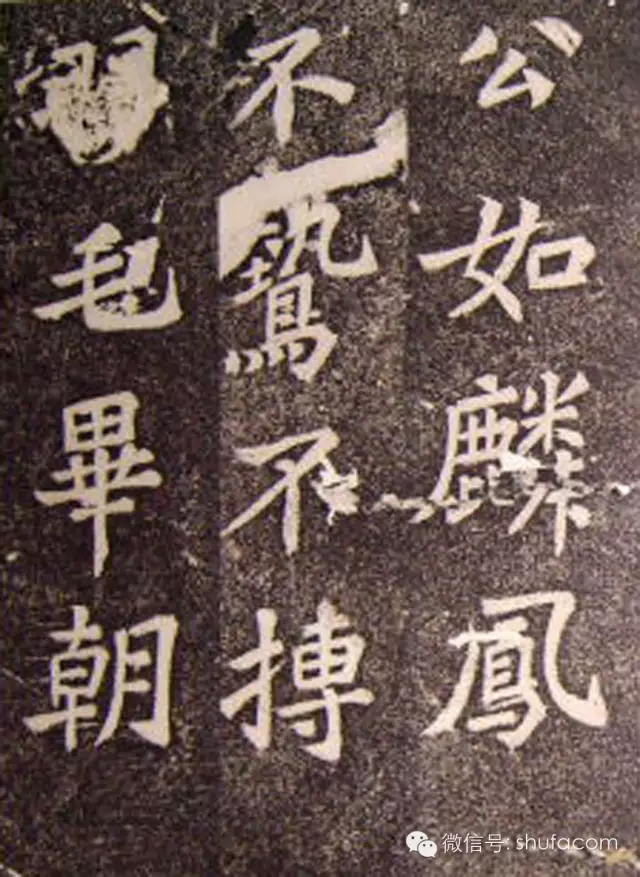 公如麟鳳
不鷙不搏
羽毛畢朝
微信号: shufacom